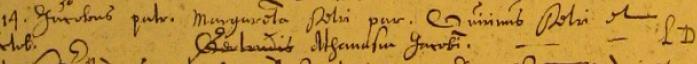 14. Jacobus patr. Margareta Petri par. Quirinus Petri et
Gertrudis Athanasin Jacobi. L D